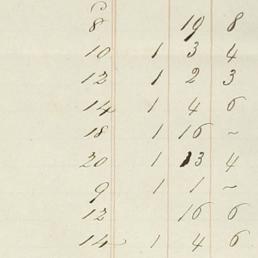 8 19 8
10 1 3 4
12 1 2 3
14 1 4 6
18 1 16 ~
20 1 13 4
9 1 1 ~
12 16 6
14 1 4 6